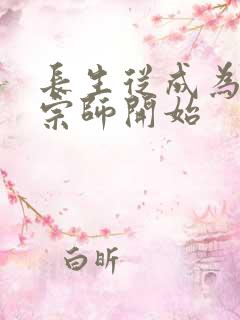 長生從成為
宗師開始
白昕